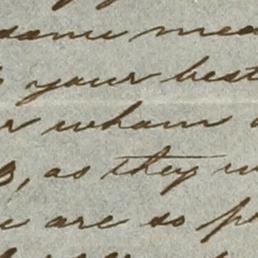 same mea
your best
r wham
, as they w
are so p